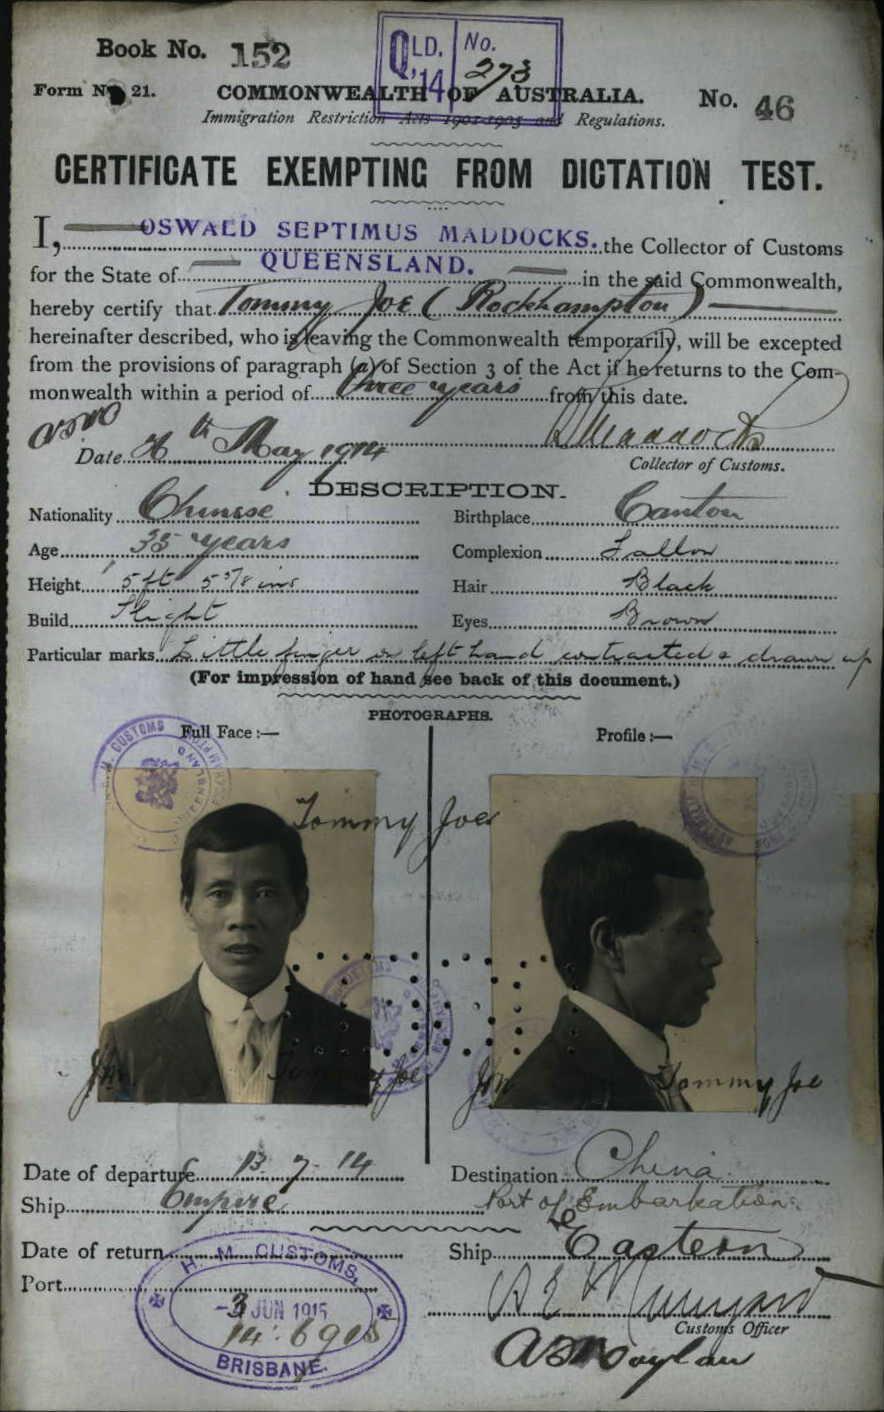 Book No. 152
QLD. '14 No. 273
Form No 21. COMMONWEALTH OF AUSTRALIA. No. 46
Immigration Restriction Acts 1901-1905 and Regulations.
CERTIFICATE EXEMPTING FROM DICTATION TEST.
I, OSWALD SEPTIMUS MADDOCKS. the Collector of Customs
for the State of QUEENSLAND. in the said Commonwealth,
hereby certify that Tommy Joe (Rockhampton)
hereinafter described, who is leaving the Commonwealth temporarily, will be excepted
from the provisions of paragraph (a) of Section 3 of the Act if he returns to the Com-
monwealth within a period of three years from this date.
Maddocks
Date th May 1914
Collector of Customs.
DESCRIPTION.
Nationality Chinese Birthplace Canton
Age 35 years Complexion Sallow
Height 5 ft 5 7/8 ins Hair Black
Build Slight Eyes Brown
Particular marks Little finger on left hand contracted & drawn up
(For impression of hand see back of this document.)
PHOTOGRAPHS.
Full Face :— Profile :—
H. M. CUSTOMS
Tommy Joe
Tommy Joe
Tommy Joe
Date of departure 13 7 14 Destination China
Ship Empire Port of Embarkation
Date of return Ship Eastern
Port
H. M. CUSTOMS,
-3 JUN 1915
14. 6908
BRISBANE.
Customs Officer